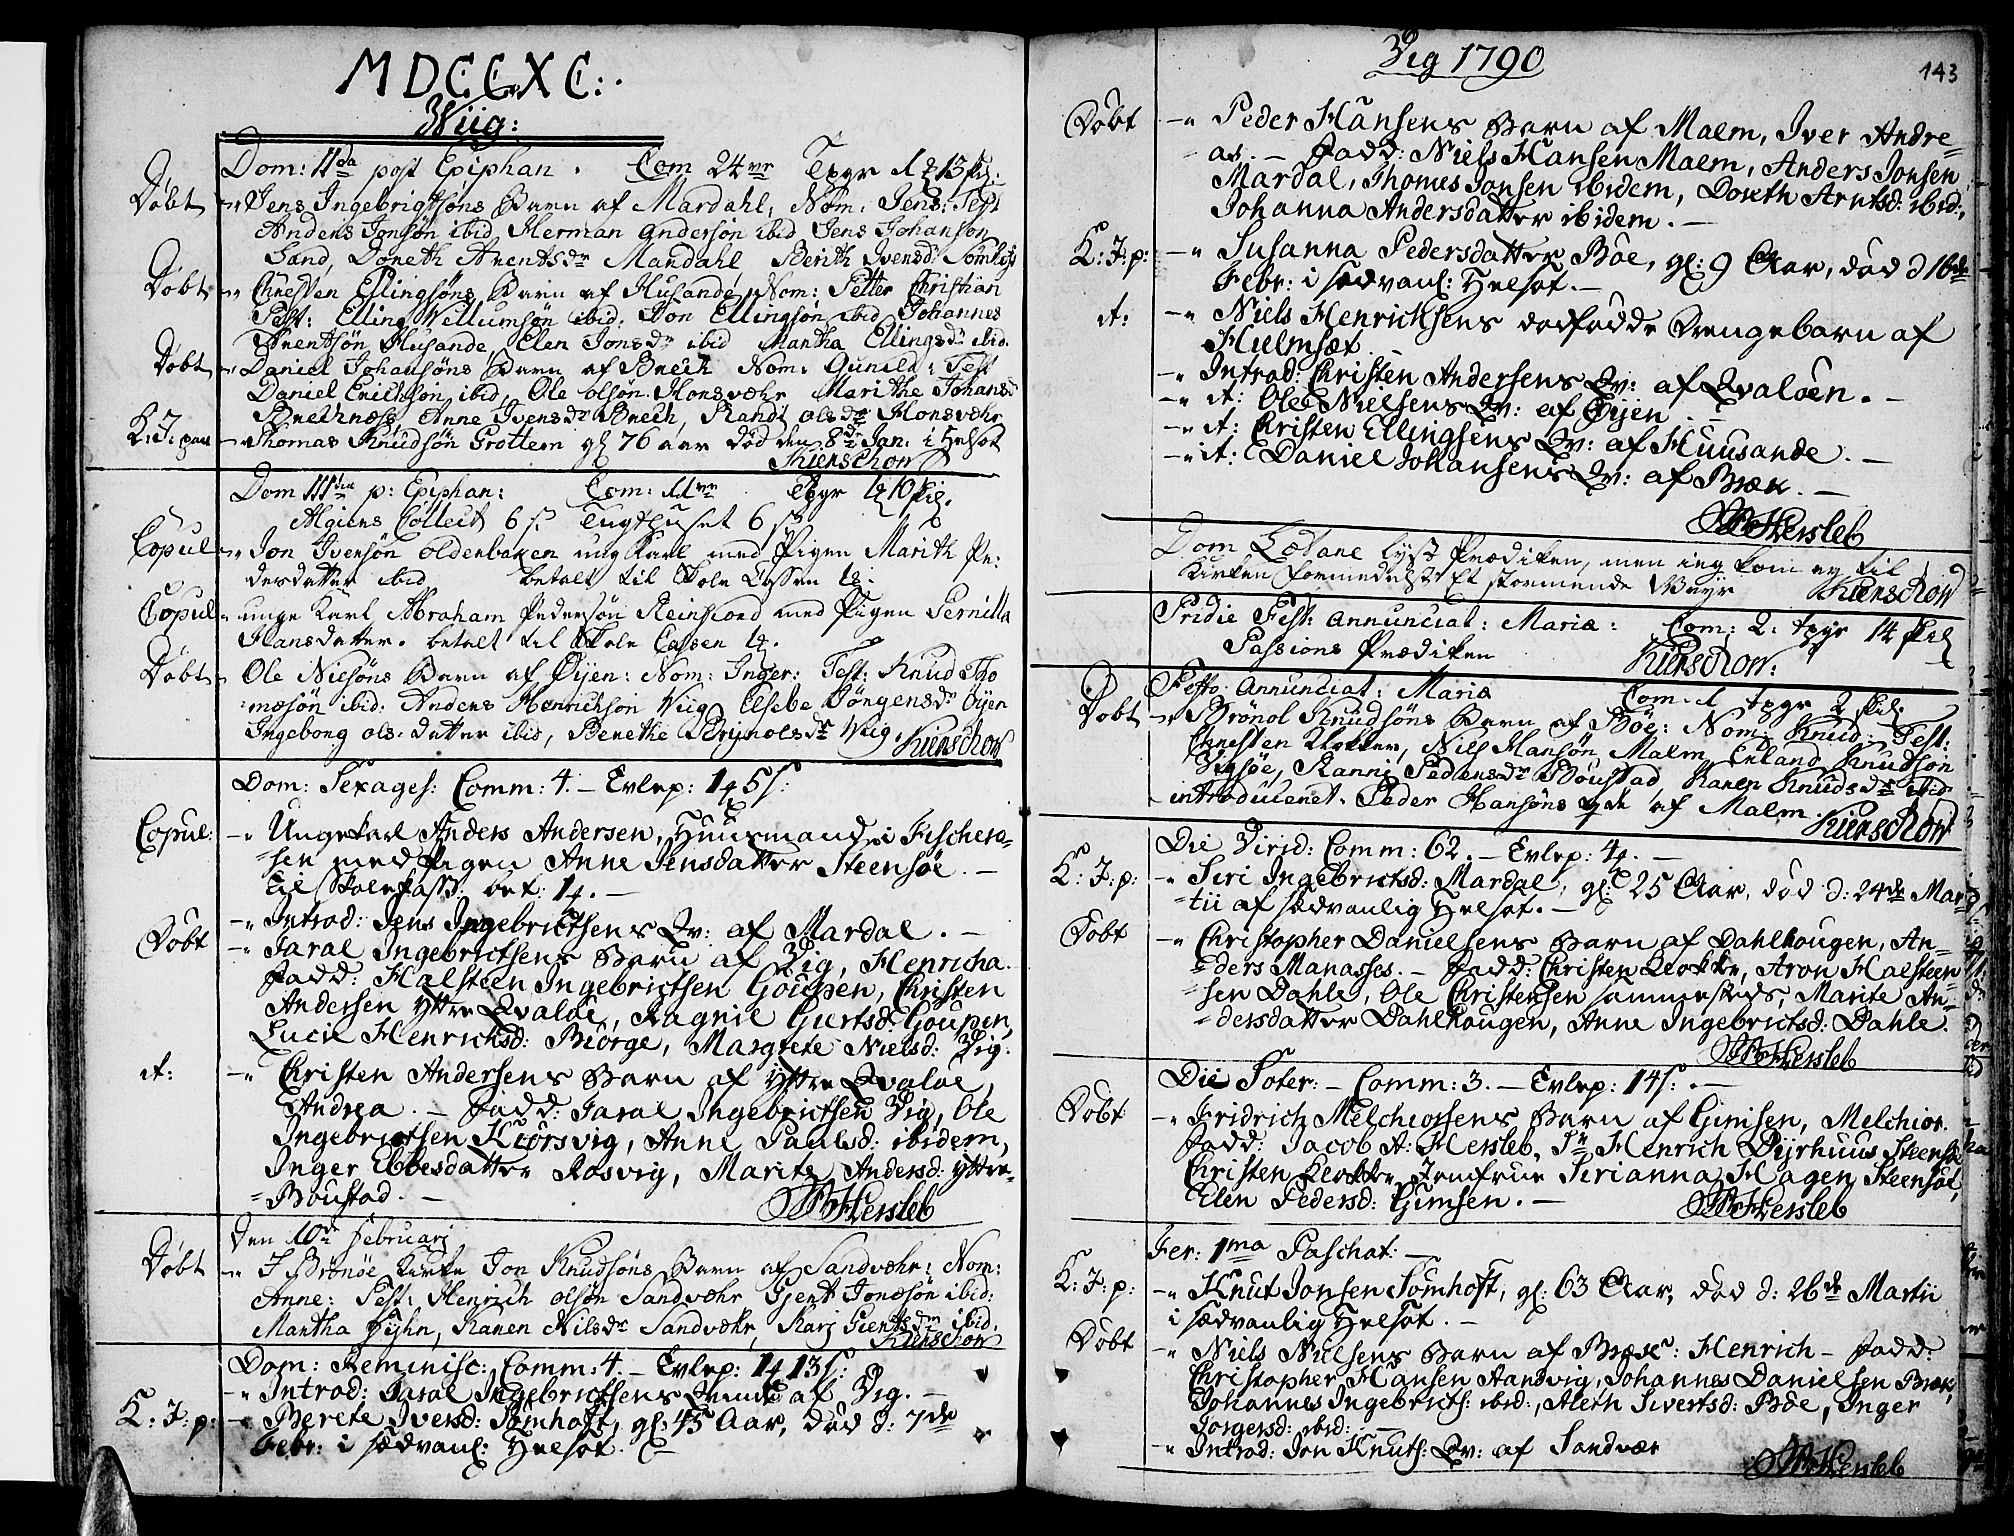 MDCCXC:.
Wiig:
Dom: IIda post Epiphan. Com 24nr Tavr 13 sk:
Døbt Jens Ingebrigtsøns Barn af Mardahl, Nom: Jens: Test
Anders Jonsøn ibid, Herman Andersøn ibid Jens Johansøn
Sand, Doreth Arentsdr Mardahl, Berith Iversdr
Døbt Christen Ellingsøns Barn af Husande, Nom: Petter Christian
Test: Elling Villumsøn ibid: Jon Ellingsøn ibid Johannes
Arentsøn Husande, Elen Jonsdr ibid Martha Ellingsdr ibid.
Døbt Daniel Johansøns Barn af Brech Nom: Gunild: Test
Daniel Erichsøn ibid, Ole Olsøn Honsvæhr Marithe Johansd
Brechnæss, Anne Iversdr Brech, Randi Olsdr Honsvæhr
K: J: paa Thomas Knudsøn Trottem gl 76 aar død den 8de Jan: i Helsot
Kierschow
Dom IIItia p: Epiphan: Com: 11nr 10 sk.
Algiers Collect 6 s Tugthuset 6 s
Copul Jon Ivensøn Oldenbaken ung Karl med Pigen Marith Pe:
dersdatter ibid betalt til Skole Cassen
Copul unge Karl Abraham Pedersøn Reinfiord med Pigen Pernilla
Hansdatter. betalt til Skole Cassen
Døbt Ole Nielsøns Barn af Øyen: Nom: Inger: Test: Knud Tho
mæsøn ibid: Anders Henrichsøn Viig Elsebe Jörgensdr Øyen
Ingeborg Ols: datter ibid, Berethe Brynolsdr Viig. Kierschow
Dom: Sexages: Comm: 4. – 5 s:
Copul: Ungekarl Anders Andersen, Huusmand i Fischera-
sen med Pigen Anne Jensdatter Steensøe. –
til Skolekass: bet: –
Introd: Jens Ingebrictsens Qv: af Mardal. –
Døbt Jaral Ingebrictsens Barn af Vig, Henricha.
Fadd: Halsteen Ingebrictsen Goupen, Christen
Andersen Yttre Qvaløe, Ragnil Giertsd: Goupen,
Lucie Henrichsd: Biörge, Margrete Nielsd: Vig:
it: Christen Andersens Barn af Yttre Qvaløe,
Andrea. – Fadd: Jaral Ingebrictsen Vig, Ole
Ingebrictsen Kiörsvig, Anne Paulsd: ibidem,
Inger Ebbesdatter Rosvig, Marite Andersd: Yttre-
Boustad. –
Hersleb
Den 10de Februarj
Døbt I Brönöe Kirke Jon Knudsöns Barn af Sandvæhr: Nom:
Anne: Test: Henrich Olsøn Sandvæhr Gjert Jonæsøn ibid:
Martha Fyhn, Karen Nilsdr Sandvæhr, Karj Giertsdr ibid.
Kierschow
Dom: Reminisc: Comm: 4. – 13 s:
Introd: Jaral Ingebrictsens Qvinde af Vig. –
K: J: p: Berete Iversd: Somhoft, gl: 45 Aar, død d: 7de
Febr: i sædvanl: Helsot. –
Vig 1790
143
Døbt Peder Hansens Barn af Malm, Iver Andre-
as. – Fadd: Niels Hansen Malm, Anders Jonsen
Mardal, Thomes Jonsen ibidem, Doreth Arntsd: ibid:,
Johanna Andersdatter ibidem. –
K: J: p: Susanna Pedersdatter Böe, gl: 9 Aar, død d 16de
Febr: i sædvanl: Helsot. –
it: Niels Henricksens dødfødde Drengebarn af
Hielmsæt
Introd: Christen Andersens Qv: af Qvaløen. –
it: Ole Nielsens Qv: af Øyen. –
it: Christen Ellingsens Qv: af Huusande. –
it: Daniel Johansens Qv: af Bræk. –
Hersleb
Dom Lætare lyst Prædiken, men ieg kom ey til
Kirken formedelst Et stormende Veyr Kierschow
Pridie Fest: Annunciat: Mariæ: Com: 2: Tavr 14 sk
Passions Prædiken Kierschow.
Festo Annunciat: Mariæ Com: 1 Tavr 2 sk.
Døbt Brönol Knudsöns Barn af Böe: Nom: Knud: Test:
Christen Klokker, Niels Hansøn Malm Erland Knudsøn
Vigsøe, Ranni Pedersdr Boustad, Karen Knudsdr ibid
introduceret. Peder Hansøns Qde af Malm. Kierschow
Die Virid: Comm: 62. – 4. –
K: J: p: Siri Ingebrictsd: Mardal, gl: 25 Aar, død d: 24de Mar-
tii af sædvanlig Helsot. –
Døbt Christopher Danielsens Barn af Dahlhougen, An-
ders Manasses. – Fadd: Christen Klokker, Aron Halsteen-
sen Dahle, Ole Christensen sammesteds, Marite An-
dersdatter Dahlhougen, Anne Ingebrictsd: Dahle.
Hersleb
Die Soter: – Comm: 3. – 14 s: –
Døbt Fridrich Melchiorsens Barn af Gimsen, Melchior.
Fadd: Jacob A: Hersleb, Sr Henrich Dyrhuus Steensøe
Christen Klokker Jomfrue Sirianna Hagen Steensøe,
Elen Pedersd: Gimsen. –
Hersleb
Fer: 1ma Paschat: –
K: J: p: Knut Jonsen Somhoft, gl: 63 Aar, død d: 26de Martii
i sædvanlig Helsot. –
Døbt Niels Nielsens Barn af Bræk: Henrich – Fadd:
Christopher Hansen Aandvig, Johannes Danielsen Bræk,
Johannes Ingebricts: ibid:, Aleth Sivertsd: Böe, Inger
Jorgersd: ibid: –
Introd: Jon Knuts: Qv: af Sandvær
Hersleb